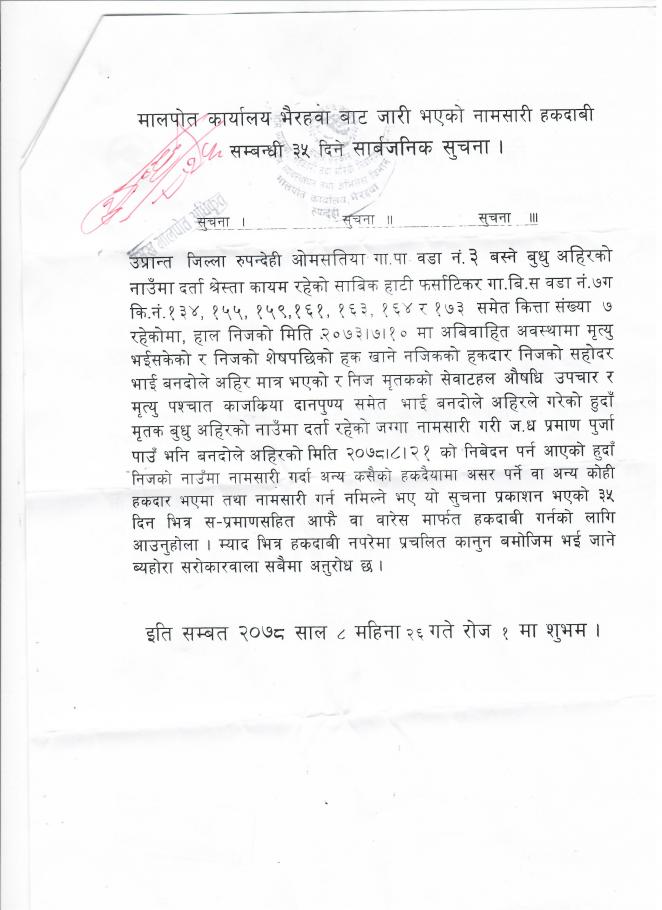 मालपोत कार्यालय भैरहवा बाट जारी भएको नामसारी हकदाबी
सम्बन्धी ३५ दिने सार्बजनिक सुचना ।
मालपोत कार्यालय, भैरहवा
रुपन्देही
मालपोत अधिकृत
सुचना । सुचना ॥ सुचना ॥।
उप्रान्त जिल्ला रुपन्देही ओमसतिया गा.पा वडा नं.३ बस्ने बुधु अहिरको
नाउँमा दर्ता श्रेस्ता कायम रहेको साबिक हाटी फर्साटिकर गा.बि.स वडा नं.७ग
कि.नं.१३४, १५५, १५९,१६१, १६३, १६४ र १७३ समेत कित्ता संख्या ७
रहेकोमा, हाल निजको मिति .२०७३।७।१० मा अबिवाहित अवस्थामा मृत्यु
भईसकेको र निजको शेषपछिको हक खाने नजिकको हकदार निजको सहोदर
भाई बनदोले अहिर मात्र भएको र निज मृतकको सेवाटहल औषधि उपचार र
मृत्यु पश्चात काजक्रिया दानपुण्य समेत भाई बनदोले अहिरले गरेको हुदाँ
मृतक बुधु अहिरको नाउँमा दर्ता रहेको जग्गा नामसारी गरी ज.ध प्रमाण पुर्जा
पाउँ भनि बनदोले अहिरको मिति २०७८।८।२१ को निबेदन पर्न आएको हुदाँ
निजको नाउँमा नामसारी गर्दा अन्य कसैको हकदैयामा असर पर्ने वा अन्य कोही
हकदार भएमा तथा नामसारी गर्न नमिल्ने भए यो सुचना प्रकाशन भएको ३५
दिन भित्र स-प्रमाणसहित आफै वा वारेस मार्फत हकदाबी गर्नको लागि
आउनुहोला । म्याद भित्र हकदाबी नपरेमा प्रचलित कानुन बमोजिम भई जाने
ब्यहोरा सरोकारवाला सबैमा अनुरोध छ ।
इति सम्बत २०७८ साल ८ महिना २६ गते रोज १ मा शुभम ।